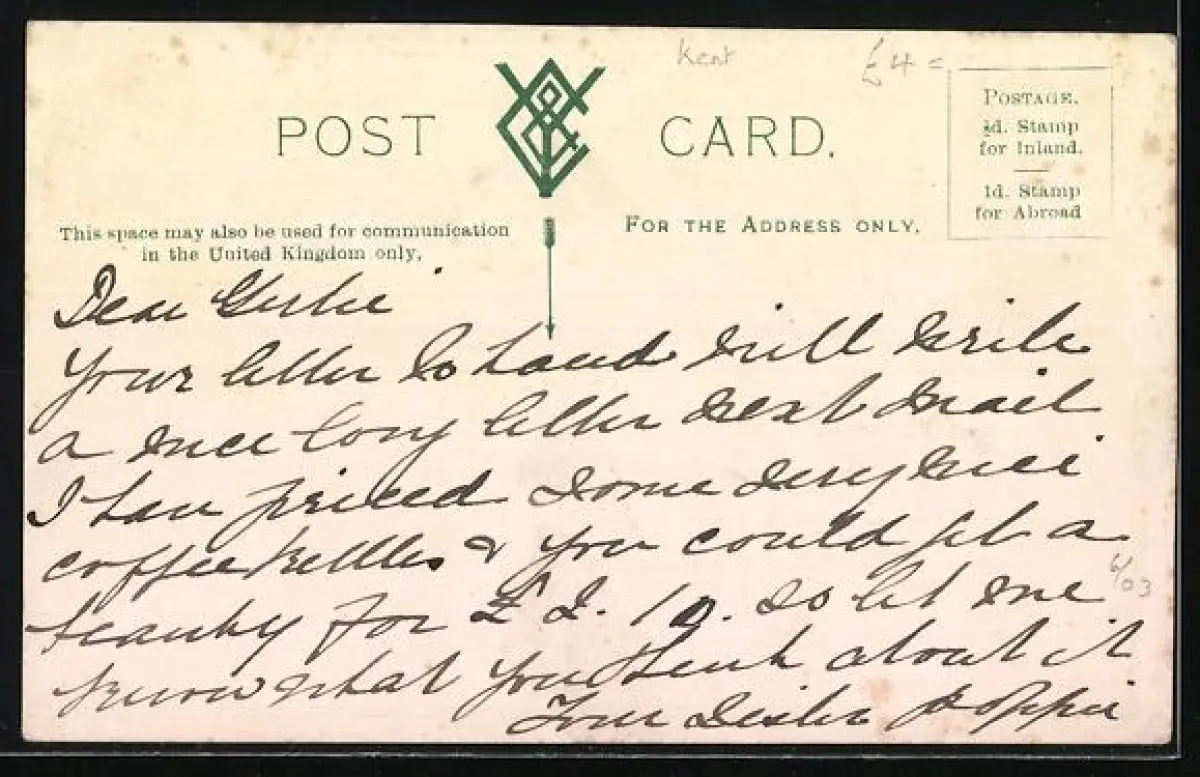 Kent
£4=
POST CARD.
POSTAGE.
½d. Stamp
for Inland.
1d. Stamp
for Abroad
This space may also be used for communication
in the United Kingdom only.
FOR THE ADDRESS ONLY.
Dear Gertie
Your letter to hand will write
a nice long letter next mail
I have priced some very nice
coffee kettles & you could get a
beauty for £ 10. so let me
6/03
know what you think about it
Your Sister